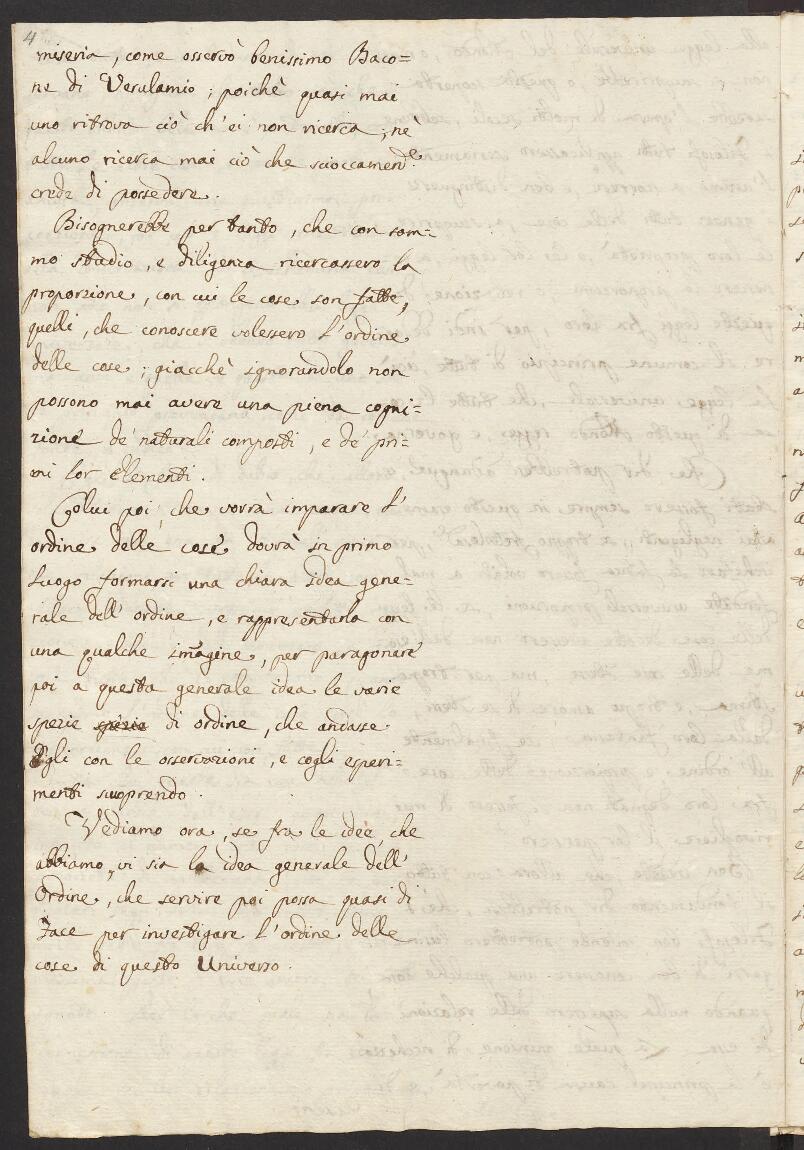 4
miseria, come osservò benissimo Baco=
ne di Verulamio; poichè quasi mai
uno ritrova ciò ch'ei non ricerca; nè
alcuno ricerca mai ciò che scioccamente
crede di possedere.
Bisognerebbe per tanto, che con som=
mo studio, e diligenza ricercassero la
proporzione, con cui le cose son fatte,
quelli, che conoscere volessero l'ordine
delle cose; giacchè ignorandolo non
possono mai avere una piena cogni=
zione de' naturali composti, e de' pri=
mi lor Elementi.
Colui poi che vorrà imparare l'
ordine delle cose dovrà in primo
luogo formarsi una chiara idea gene=
rale dell'ordine, e rappresentarla con
una qualche imagine, per paragonare
poi a questa generale idea le varie
spezie spezie di ordine, che andasse
Egli con le osservazioni, e cogli esperi=
menti scuoprendo.
Vediamo ora, se fra le idee, che
abbiamo, vi sia la idea generale dell'
Ordine, che servire poi possa quasi di
face per investigare l'ordine delle
cose di questo Universo.